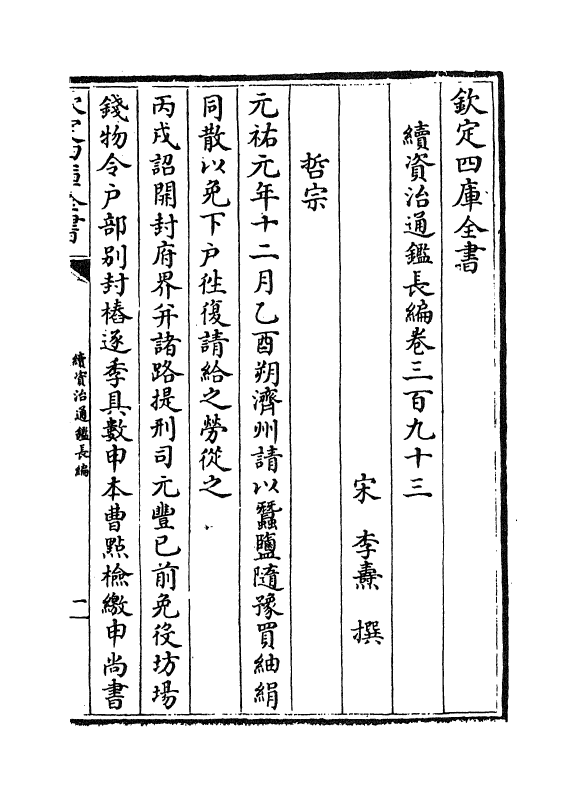 欽定四庫全書
續資治通鑑長編卷三百九十三
宋 李燾 撰
哲宗
元祐元年十二月乙酉朔濟州請以蠶鹽隨豫買紬絹
同散以免下户徃復請給之勞從之
丙戌詔開封府界并諸路提刑司元豐已前免役坊場
錢物令户部别封樁逐季具數申本曹㸃檢繳申尚書
欽定四庫全書
續資治通鑑長編
二